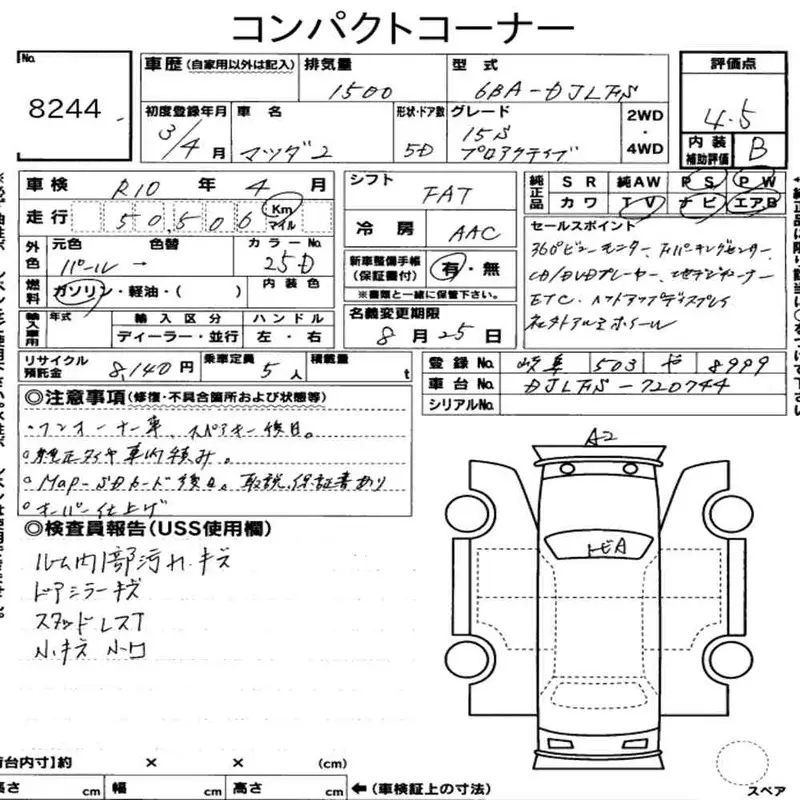 コンパクトコーナー
No.
8244
車歴 (自家用以外は記入)
排気量
1500
型式
6BA-DJLFS
評価点
4.5
初度登録年月
3/4月
車名
マツダ2
形状・ドア数
5D
グレード
15S
プロアクティブ
2WD
・
4WD
内装
補助評価
B
車検
R10年4月
走行
50,506
Km
マイル
外色
元色
色替
カラーNo.
パール
→
25D
燃料
ガソリン・軽油・( )
内装色
輸入車用
年式
輸入区分
ハンドル
ディーラー・並行
左・右
リサイクル
預託金
8,140円
乗車定員
5人
積載量
t
シフト
FAT
冷房
AAC
新車整備手帳
(保証書付)
有・無
※書類と一緒に保管下さい。
名義変更期限
8月25日
純正品
SR
純AW
PS
PW
カワ
TV
ナビ
エアB
セールスポイント
360°ビューモニター、
CD/DVDプレーヤー、地デジチューナー
ETC、ヘッドアップディスプレイ
社外アルミホイール
登録No.
岐阜
503
や
8999
車台No.
DJLFS-720744
シリアルNo.
◎注意事項(修復・不具合箇所および状態等)
・ワンオーナー車、スペアキー後日。
◦純正タイヤ車内積み。
◦Map-SDカード後日。取説、保証書あり
◦オーバー仕上げ
◎検査員報告(USS使用欄)
ルーム内1部汚れ、キズ
ドアミラーキズ
スタッドレスT
小キズ 小凹
A2
トビA
荷台内寸】約
×
×
(cm)
長さ
cm
幅
cm
高さ
cm
←(車検証上の寸法)
スペア